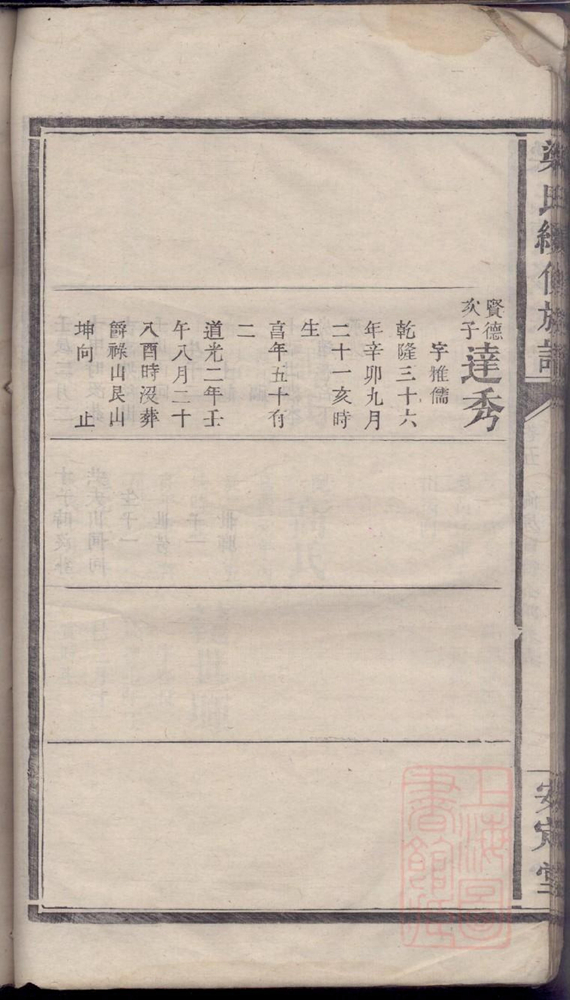 梁氏續修族譜
安定堂
賢德
次子
達秀
字雅儒
乾隆三十六
年辛卯九月
二十一亥時
生
富年五十有
二
道光二年壬
午八月二十
八酉時沒葬
爵祿山艮山
坤向 止
上海圖
書館藏